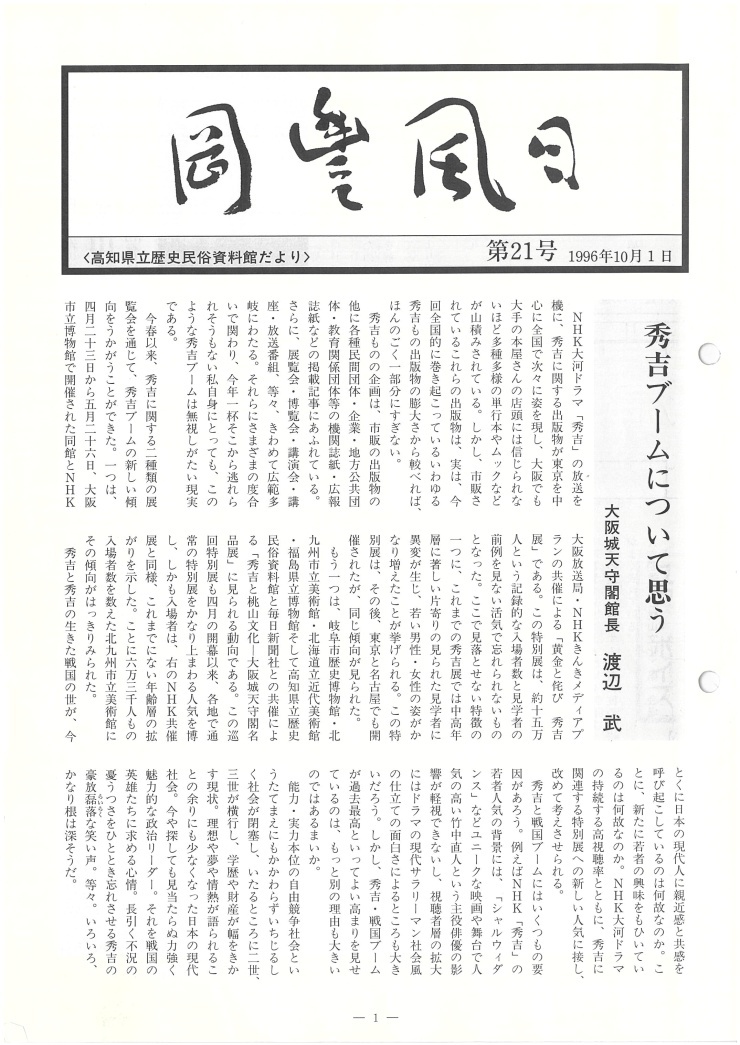 岡豊風日
〈高知県立歴史民俗資料館だより〉
第21号 1996年10月1日
秀吉ブームについて思う
大阪城天守閣館長 渡辺 武
NHK大河ドラマ「秀吉」の放送を
機に、秀吉に関する出版物が東京を中
心に全国で次々に姿を現し、大阪でも
大手の本屋さんの店頭には信じられな
いほど多種多様の単行本やムックなど
が山積みされている。しかし、市販さ
れているこれらの出版物は、実は、今
回全国的に巻き起こっているいわゆる
秀吉もの出版物の膨大さから較べれば、
ほんのごく一部分にすぎない。
秀吉ものの企画は、市販の出版物の
他に各種民間団体・企業・地方公共団
体・教育関係団体等の機関誌紙・広報
誌紙などの掲載記事にあふれている。
さらに、展覧会・博覧会・講演会・講
座・放送番組、等々、きわめて広範多
岐にわたる。それらにさまざまの度合
いで関わり、今年一杯そこから逃れら
れそうもない私自身にとっても、この
ような秀吉ブームは無視しがたい現実
である。
今春以来、秀吉に関する二種類の展
覧会を通じて、秀吉ブームの新しい傾
向をうかがうことができた。一つは、
四月二十三日から五月二十六日、大阪
市立博物館で開催された同館とNHK
大阪放送局・NHKきんきメディアプ
ランの共催による「黄金と侘び 秀吉
展」である。この特別展は、約十五万
人という記録的な入場者数と見学者の
前例を見ない活気で忘れられないもの
となった。ここで見落とせない特徴の
一つに、これまでの秀吉展では中高年
層に著しい片寄りの見られた見学者に
異変が生じ、若い男性・女性の姿がか
なり増えたことが挙げられる。この特
別展は、その後、東京と名古屋でも開
催されたが、同じ傾向が見られた。
もう一つは、岐阜市歴史博物館・北
九州市立美術館・北海道立近代美術館
・福島県立博物館そして高知県立歴史
民俗資料館と毎日新聞社との共催によ
る「秀吉と桃山文化―大阪城天守閣名
品展」に見られる動向である。この巡
回特別展も四月の開幕以来、各地で通
常の特別展をかなり上まわる人気を博
し、しかも入場者は、右のNHK共催
展と同様、これまでにない年齢層の拡
がりを示した。ことに六万三千人もの
入場者数を数えた北九州市立美術館に
その傾向がはっきりみられた。
秀吉と秀吉の生きた戦国の世が、今
とくに日本の現代人に親近感と共感を
呼び起こしているのは何故なのか。こ
とに、新たに若者の興味をもひいてい
るのは何故なのか。NHK大河ドラマ
の持続する高視聴率とともに、秀吉に
関連する特別展への新しい人気に接し、
改めて考えさせられる。
秀吉と戦国ブームにはいくつもの要
因があろう。例えばNHK「秀吉」の
若者人気の背景には、「シャルウィダ
ンス」などユニークな映画や舞台で人
気の高い竹中直人という主役俳優の影
響が軽視できないし、視聴者層の拡大
にはドラマの現代サラリーマン社会風
の仕立ての面白さによるところも大き
いだろう。しかし、秀吉・戦国ブーム
が過去最高といってよい高まりを見せ
ているのは、もっと別の理由も大きい
のではあるまいか。
能力・実力本位の自由競争社会とい
うたてまえにもかかわらずいちじるし
く社会が閉塞し、いたるところに二世、
三世が横行し、学歴や財産が幅をきか
す現状。理想や夢や情熱が語られるこ
との余りにも少なくなった日本の現代
社会。今や探しても見当たらぬ力強く
魅力的な政治リーダー。それを戦国の
英雄たちに求める心情。長引く不況の
憂うつさをひととき忘れさせる秀吉の
豪放磊落な笑い声。等々。いろいろ、
かなり根は深そうだ。
― 1 ―